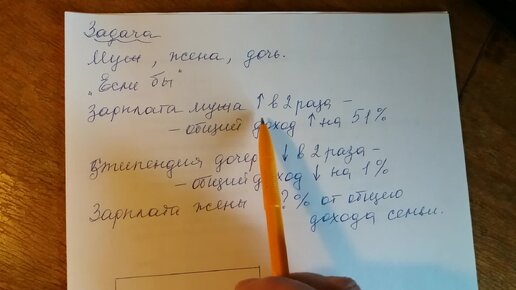 Задача
Муж, жена, дочь.
"Если бы"
Зарплата мужа ↑ в 2 раза –
– общий доход ↑ на 51%
Стипендия дочери ↓ в 2 раза –
– общий доход ↓ на 1%
Зарплата жены ? % от общего
дохода семьи.